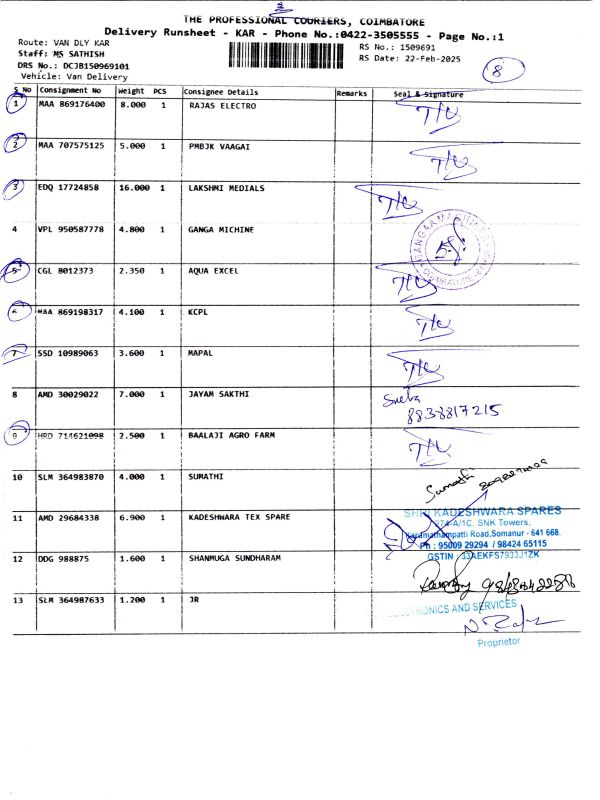 THE PROFESSIONAL COURIERS, COIMBATORE
Delivery Runsheet - KAR - Phone No.:0422-3505555 - Page No.:1
Route: VAN DLY KAR
Staff: MS SATHISH
DRS No.: DCJB150969101
Vehicle: Van Delivery
RS No.: 1509691
RS Date: 22-Feb-2025
8
S No Consignment No Weight PCS Consignee Details Remarks Seal & Signature
1 MAA 869176400 8.000 1 RAJAS ELECTRO
2 MAA 707575125 5.000 1 PMBJK VAAGAI
3 EDQ 17724858 16.000 1 LAKSHMI MEDIALS
4 VPL 950587778 4.800 1 GANGA MICHINE
5 CGL 8012373 2.350 1 AQUA EXCEL
6 MAA 869198317 4.100 1 KCPL
7 SSD 10989063 3.600 1 MAPAL
8 AMD 30029022 7.000 1 JAYAM SAKTHI
8838817215
9 HRD 714621098 2.500 1 BAALAJI AGRO FARM
10 SLM 364983870 4.000 1 SUMATHI Sumathi
11 AMD 29684338 6.900 1 KADESHWARA TEX SPARE
SHRI KADESHWARA SPARES
274-A/1C, SNK Towers,
Karamathampatti Road, Somanur - 641 668.
Ph : 95009 29294 / 98424 65115
GSTIN : 33AEKFS7933J1ZK
12 DDG 988875 1.600 1 SHANMUGA SUNDHARAM
13 SLM 364987633 1.200 1 JR
ELECTRONICS AND SERVICES
Proprietor